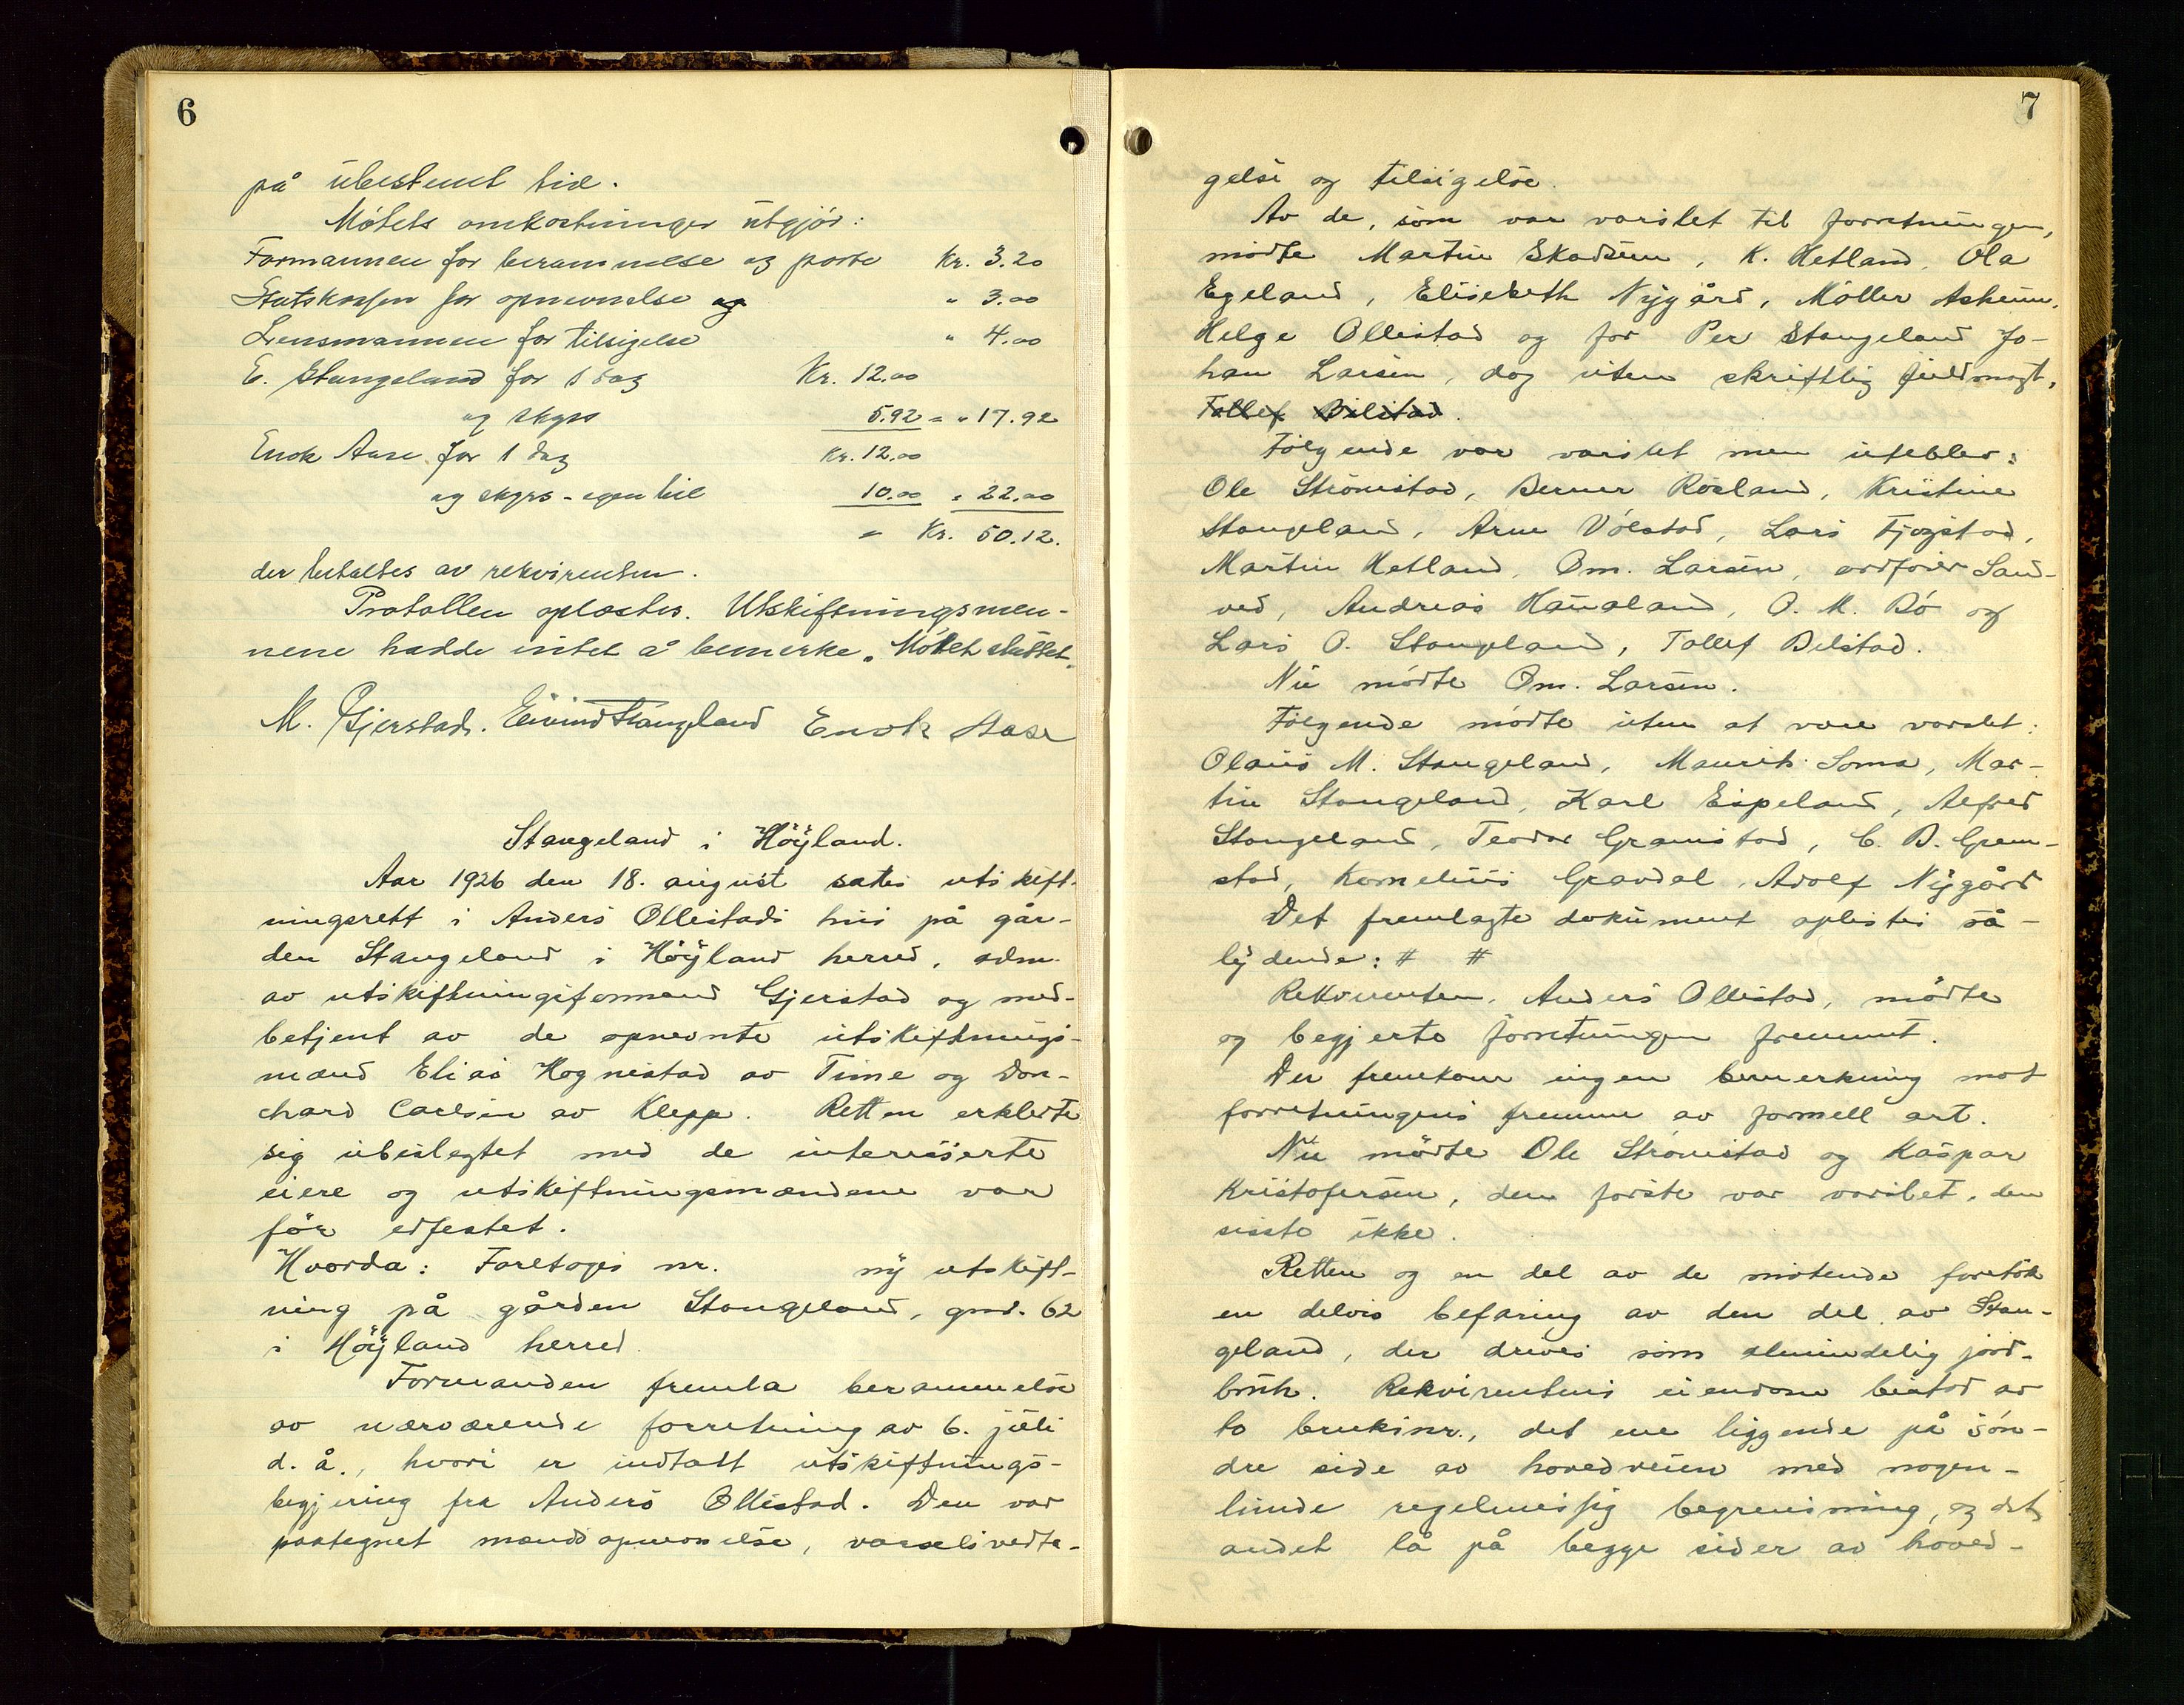 6
på ubestemt tid.
Møtets omkostninger utgjør:
Formannen for berammelse og porto Kr. 3.20
Statskassen for opnevnelse og " 3.00
Lensmannen for tilsigelse " 4.00
E. Stangeland for 1 dag Kr. 12.00
og skyss 5.92 = " 17.92
Enok Aase for 1 dag Kr. 12.00
og skyss - egen bil 10.00 = 22.00
= Kr. 50.12.
der betaltes av rekvirenten.
Protokollen oplæstes. Utskiftningsmen-
nene hadde intet å bemerke. Møtet sluttet.
M. Gjerstad. Eivind Stangeland Enok Aase
Stangeland i Høyland.
Aar 1926 den 18. august sattes utskift-
ningsrett i Anders Ollestads hus på går-
den Stangeland i Høyland herred, adm.
av utskiftningsformand Gjerstad og med-
betjent av de opnevnte utskiftnings-
mænd Elias Hognestad av Time og Don-
chard Carlsen av Klepp. Retten erklerte
sig ubeslegtet med de interesserte
eiere og utskiftningsmændene var
før edfestet.
Hvorda: Foretoges nr. ny utskift-
ning på gården Stangeland, gnr. 62
i Høyland herred.
Formanden fremla berammelse
av nærværende forretning av 6. juli
d. å., hvori er indtatt utskiftnings-
begjering fra Anders Ollestad. Den var
paategnet mandsopnevnelse, varselsvedta-
7
gelse og tilsigelse.
Av de, som var varslet til forretningen,
møtte Martin Skadsem, K. Hetland, Ola
Egeland, Elisebeth Nygård, Møller Asheim,
Helge Ollestad og for Per Stangeland Jo-
han Larsen, dog uten skriftlig fuldmagt,
Tollef Bilstad.
Følgende var varslet men uteblev:
Ole Strømstad, Berner Rosland, Kristine
Stangeland, Arne Vølstad, Lars Fjogstad,
Martin Hetland, Om. Larsen, ordfører Sand-
ved, Andreas Hanaland, O. M. Bø og
Lars O. Stangeland, Tollef Bilstad.
Nu møtte Om. Larsen.
Følgende møtte uten at være varslet:
Olaus M. Stangeland, Maurits Soma, Mar-
tin Stangeland, Karl Espeland, Alfred
Stangeland, Teodor Gramstad, C. B. Gram-
stad, Kornelius Gravdal, Adolf Nygård
Det fremlagte dokument oplestes så-
lydende: # #
Rekvirenten, Anders Ollestad, møtte
og begjerte forretningen fremmet.
Der fremkom ingen bemerkning mot
forretningens fremme av formell art.
Nu møtte Ole Strømstad og Kaspar
Kristofersen, den første var varslet, den
siste ikke.
Retten og en del av de møtende foretok
en delvis befaring av den del av Stan-
geland, der drives som almindelig jord-
bruk. Rekvirentens eiendom bestod av
to bruksnr., det ene liggende på søn-
dre side av hovedveien med nogen-
lunde regelmessig begrensning, og det
andet lå på begge sider av hoved-